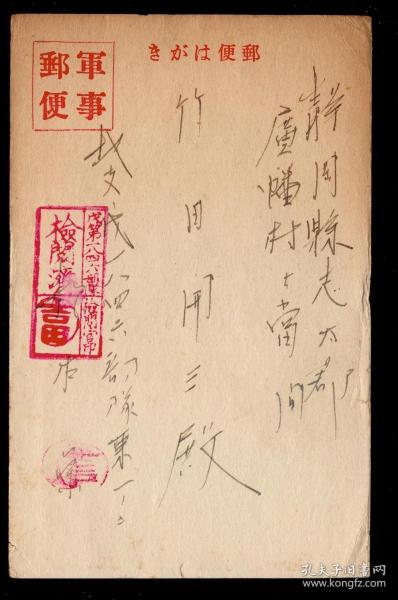 郵便はがき
軍事
郵便
靜岡縣志太郡
廣幡村大當間
竹田開三殿
北支戍一八四六部隊東一
戍第一八四六部隊
檢閲濟
吉田
孔夫子旧书网
www.kongfz.com